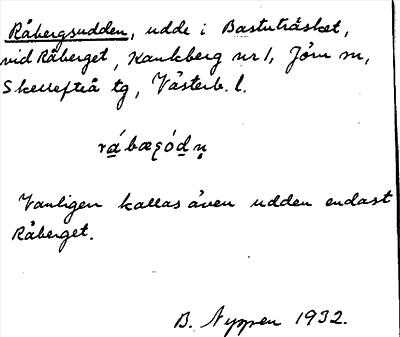 Råbergsudden, udde i Bastuträsket,
vid Råberget, Kankberg nr 1, Jörn sn,
Skellefteå tg, Västerb. l.
rábægódṇ
Vanligen kallas även udden endast
Råberget.
B. Nyppen 1932.